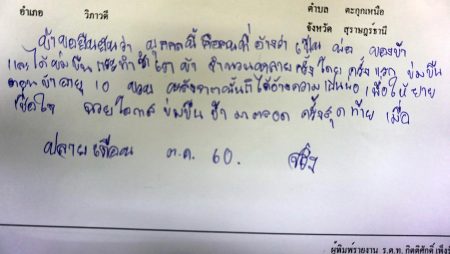 อำเภอ วิภาวดี ตำบล ตะกุกเหนือ
จังหวัด สุราษฎร์ธานี
ข้าขอยืนยันว่า บุคคลนี้ คือคนที่อ้างว่า เป็น พ่อ ของข้า
และได้ข่มขืน กระทำชำเราข้า จำนวนหลายครั้ง โดย ครั้งแรก ข่มขืน
ตอนข้าอายุ 10 ขวบ หลังจากนั้นก็ได้อ้างความเป็นพ่อ เพื่อให้ยาย
เชื่อใจ ฉวยโอกาส ข่มขืน ข้า มาตลอด ครั้งสุดท้าย เมื่อ
ปลายเดือน ต.ค. 60.
ผู้พิมพ์รายงาน ร.ต.ท. กิตติศักดิ์